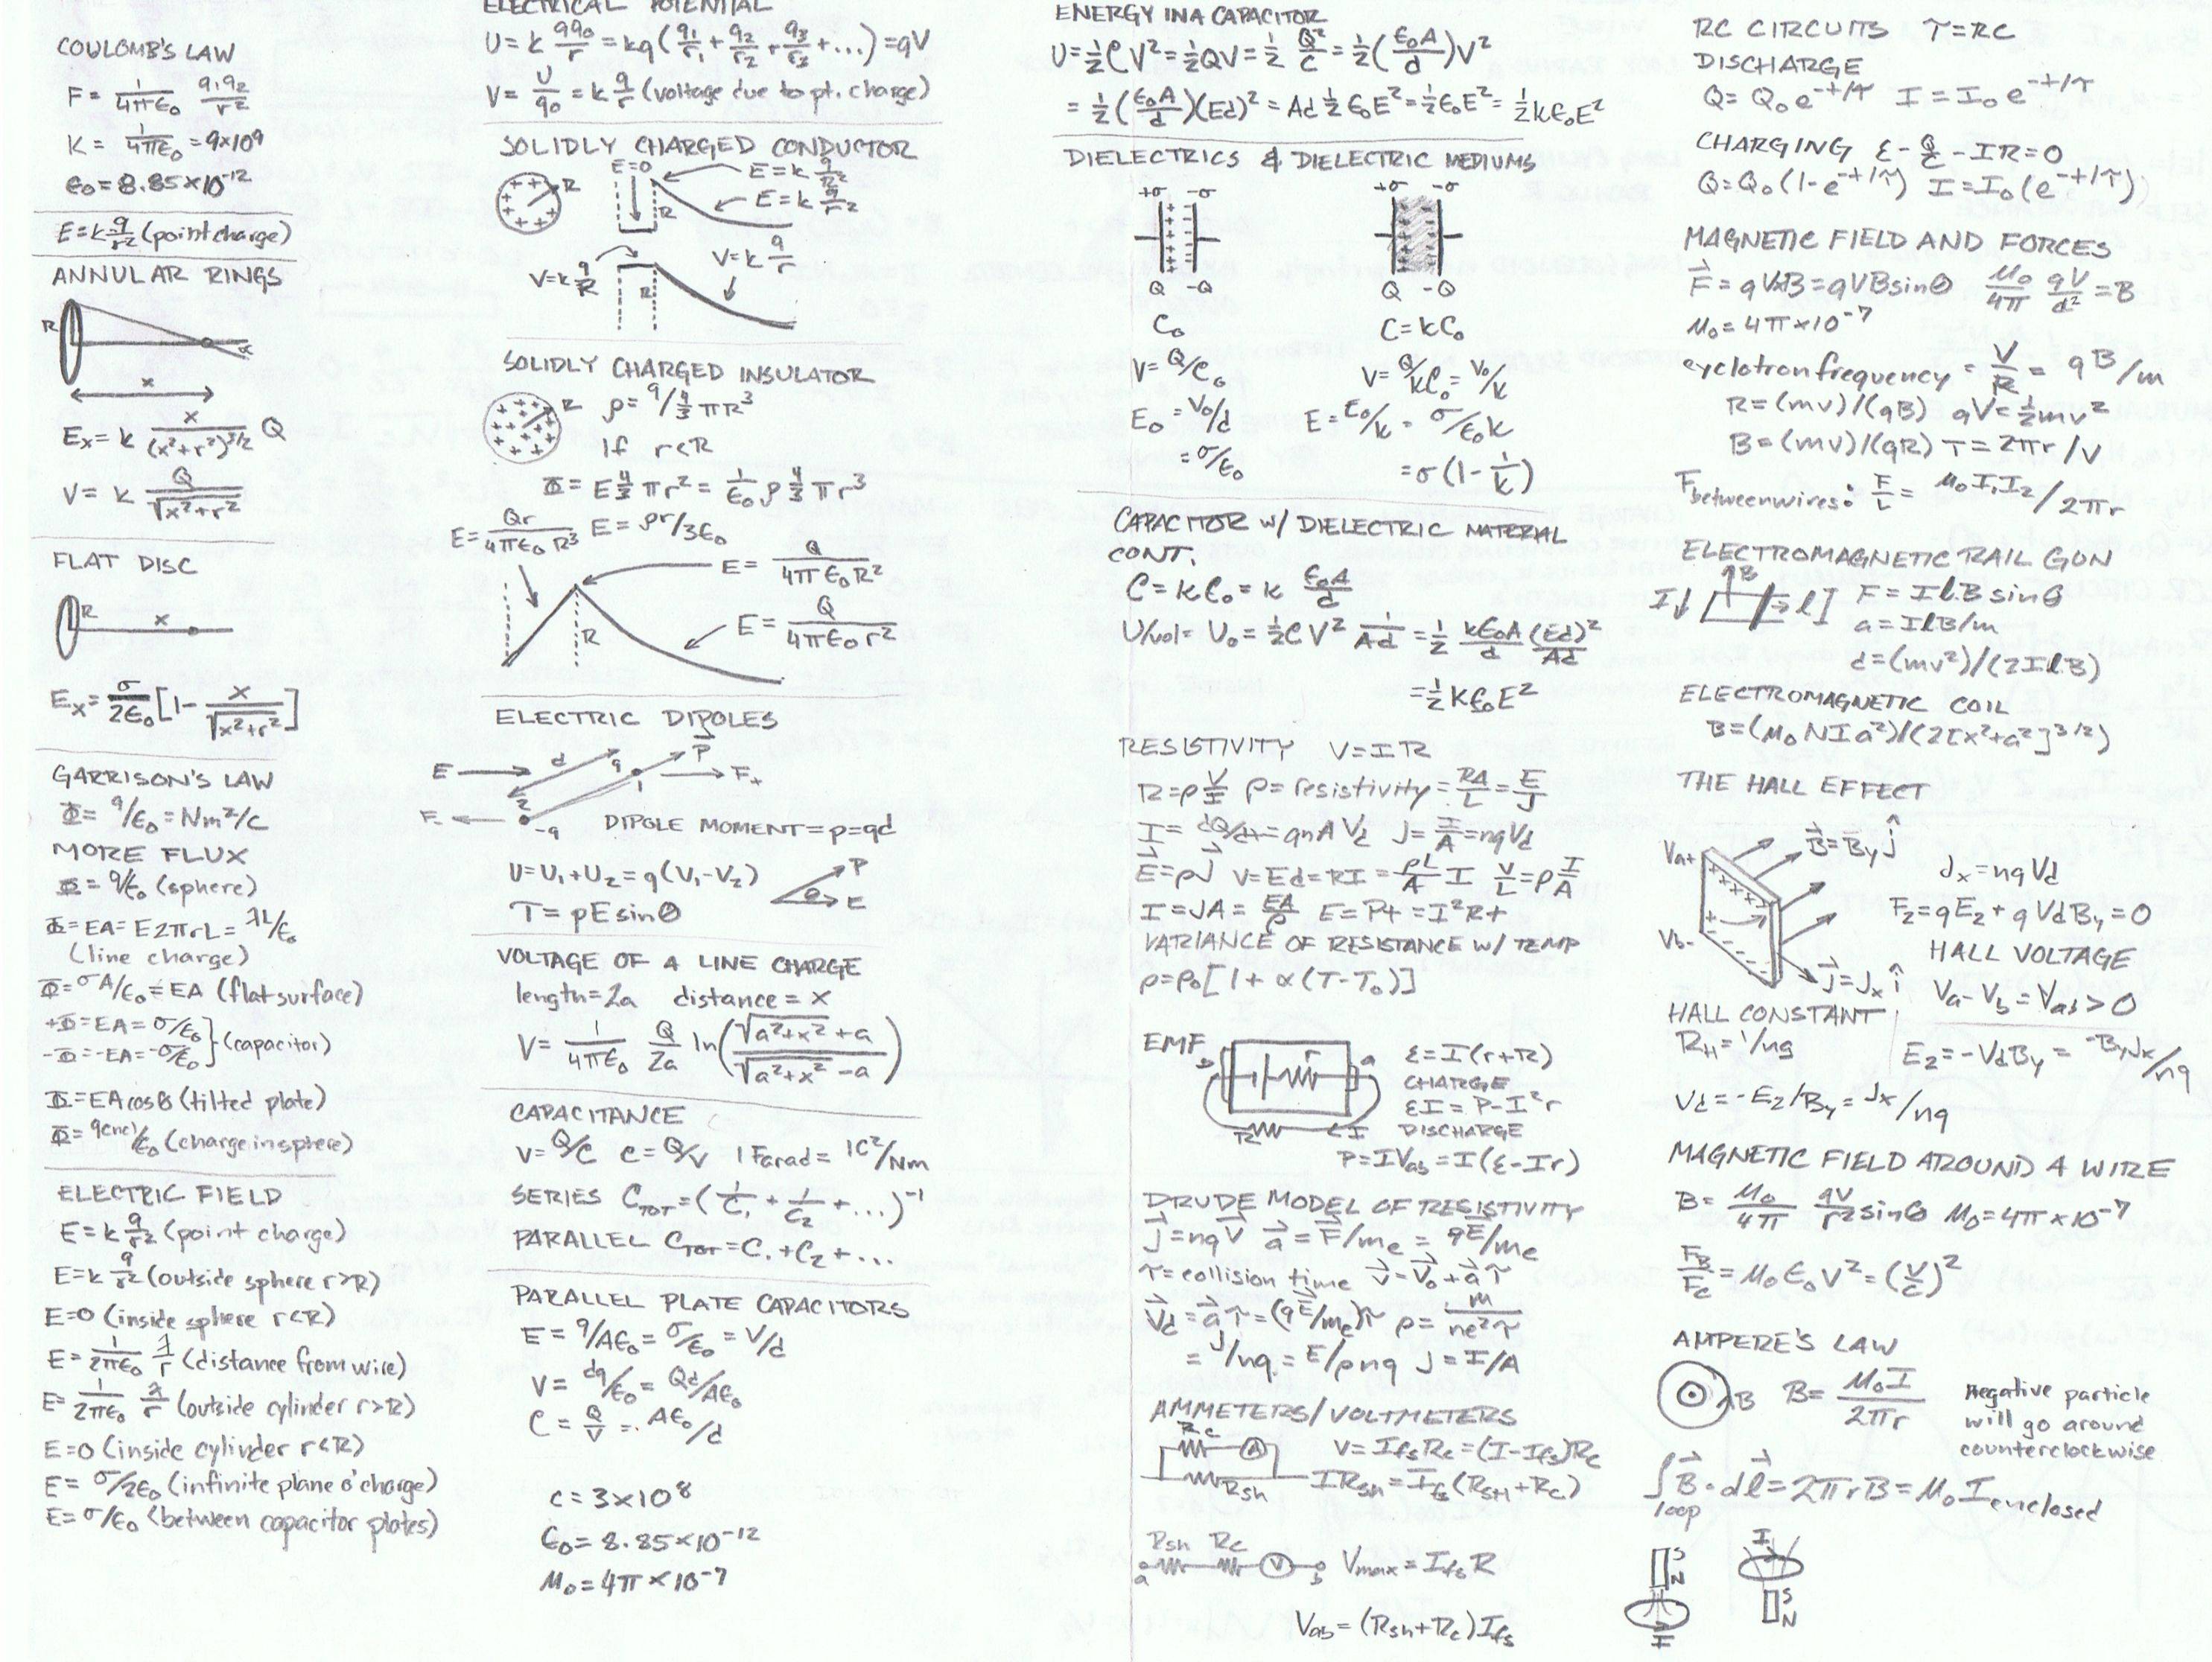 COULOMB'S LAW
F = 1/4πϵ₀ q₁q₂/r²
K = 1/4πϵ₀ = 9×10⁹
ϵ₀ = 8.85×10⁻¹²
E = k q/r² (point charge)
ANNULAR RINGS
R
x
Eₓ = k x/(x²+r²)^3/2 Q
V = k Q/√(x²+r²)
FLAT DISC
R x
Eₓ = σ/2ϵ₀ [1 - x/√(x²+r²)]
GARRISON'S LAW
Φ = q/ϵ₀ = Nm²/C
MORE FLUX
Φ = q/ϵ₀ (sphere)
Φ = EA = E2πrL = λL/ϵ₀
(line charge)
Φ = σA/ϵ₀ = EA (flat surface)
+Φ = EA = σ/ϵ₀
-Φ = -EA = -σ/ϵ₀ } (capacitor)
Φ = EA cosθ (tilted plate)
Φ = qencl/ϵ₀ (charge in sphere)
ELECTRIC FIELD
E = k q/r² (point charge)
E = k q/r² (outside sphere r>R)
E=0 (inside sphere r<R)
E = 1/2πϵ₀ λ/r (distance from wire)
E = 1/2πϵ₀ λ/r (outside cylinder r>R)
E=0 (inside cylinder r<R)
E = σ/2ϵ₀ (infinite plane o' charge)
E = σ/ϵ₀ (between capacitor plates)
ELECTRICAL POTENTIAL
U = k qq₀/r = kq(q₁/r₁ + q₂/r₂ + q₃/r₃ + ...) = qV
V = U/q₀ = k q/r (voltage due to pt. charge)
SOLIDLY CHARGED CONDUCTOR
R E=0 R E = k q/R²
E = k q/r²
V = k q/R R V = k q/r
SOLIDLY CHARGED INSULATOR
R ρ = q/4/3 πR³
If r<R
Φ = E 4/3 πr² = 1/ϵ₀ ρ 4/3 πr³
E = Qr/4πϵ₀R³ E = ρr/3ϵ₀
E = Q/4πϵ₀R²
R E = Q/4πϵ₀r²
ELECTRIC DIPOLES
E d q P F₊
2 1
F₋ -q DIPOLE MOMENT = p = qd
U = U₁+U₂ = q(V₁-V₂) P
T = pE sinθ θ E
VOLTAGE OF A LINE CHARGE
length = 2a distance = x
V = 1/4πϵ₀ Q/2a ln(√(a²+x²) + a / √(a²+x²) - a)
CAPACITANCE
V = Q/C C = Q/V 1 Farad = 1C²/Nm
SERIES C_TOT = (1/C₁ + 1/C₂ + ...)⁻¹
PARALLEL C_TOT = C₁ + C₂ + ...
PARALLEL PLATE CAPACITORS
E = q/Aϵ₀ = σ/ϵ₀ = V/d
V = dq/ϵ₀ = Qd/Aϵ₀
C = Q/V = Aϵ₀/d
c = 3×10⁸
ϵ₀ = 8.85×10⁻¹²
μ₀ = 4π×10⁻⁷
ENERGY IN A CAPACITOR
U = ½CV² = ½QV = ½ Q²/C = ½(ϵ₀A/d)V²
= ½(ϵ₀A/d)(Ed)² = Ad ½ ϵ₀E² = ½ϵ₀E² = ½kϵ₀E²
DIELECTRICS & DIELECTRIC MEDIUMS
+σ -σ +σ -σ
Q -Q Q -Q
C₀ C = kC₀
V = Q/C₀ V = Q/kC₀ = V₀/k
E₀ = V₀/d E = E₀/k = σ/ϵ₀k
= σ/ϵ₀ = σ(1 - 1/k)
CAPACITOR W/ DIELECTRIC MATERIAL
CONT.
C = kC₀ = k ϵ₀A/d
U/vol = U₀ = ½CV² 1/Ad = ½ kϵ₀A/d (Ed)²/Ad
= ½kϵ₀E²
RESISTIVITY V = IR
R = ρ V/I ρ = resistivity = RA/L = E/J
I = dQ/dt = qnAVd J = I/A = nqVd
E = ρJ V = Ed = RI = ρL/A I V/L = ρ I/A
I = JA = EA/ρ E = Pt = I²Rt
VARIANCE OF RESISTANCE W/ TEMP
ρ = ρ₀[1 + α(T-T₀)]
EMF b r a ε = I(r+R)
CHARGE
εI = P - I²r
R I DISCHARGE
P = IVab = I(ε-Ir)
DRUDE MODEL OF RESISTIVITY
J = nqV a = F/me = qE/me
τ = collision time v = v₀ + aτ
Vd = aτ = (qE/me)τ ρ = m/ne²τ
= J/nq = E/ρnq J = I/A
AMMETERS/VOLTMETERS
Rc A V = IfsRc = (I-Ifs)Rc
Rsh IRsh = Ifs(Rsh+Rc)
a Rsh Rc V b Vmax = IfsR
Vab = (Rsh+Rc)Ifs
RC CIRCUITS τ = RC
DISCHARGE
Q = Q₀e^-t/τ I = I₀e^-t/τ
CHARGING ε - Q/C - IR = 0
Q = Q₀(1-e^-t/τ) I = I₀(e^-t/τ)
MAGNETIC FIELD AND FORCES
F = qV×B = qVB sinθ μ₀/4π qV/d² = B
μ₀ = 4π×10⁻⁷
cyclotron frequency = V/R = qB/m
R = (mv)/(qB) qV = ½mv²
B = (mv)/(qR) T = 2πr/V
F between wires: F/L = μ₀I₁I₂/2πr
ELECTROMAGNETIC RAIL GUN
I B l F = IlB sinθ
a = IlB/m
d = (mv²)/(2IlB)
ELECTROMAGNETIC COIL
B = (μ₀NIa²)/(2[x²+a²]^3/2)
THE HALL EFFECT
Va+ B = By ĵ
Jx = nqVd
Fz = qEz + qVdBy = 0
Vb- HALL VOLTAGE
J = Jx î Va - Vb = Vab > 0
HALL CONSTANT
R_H = 1/nq Ez = -VdBy = -ByJx/nq
Vd = -Ez/By = Jx/nq
MAGNETIC FIELD AROUND A WIRE
B = μ₀/4π qv/r² sinθ μ₀ = 4π×10⁻⁷
F_B/F_C = μ₀ϵ₀V² = (V/c)²
AMPERE'S LAW
B B = μ₀I/2πr Negative particle
will go around
counterclockwise
∫loop B·dl = 2πrB = μ₀ I enclosed
S N I
I S N